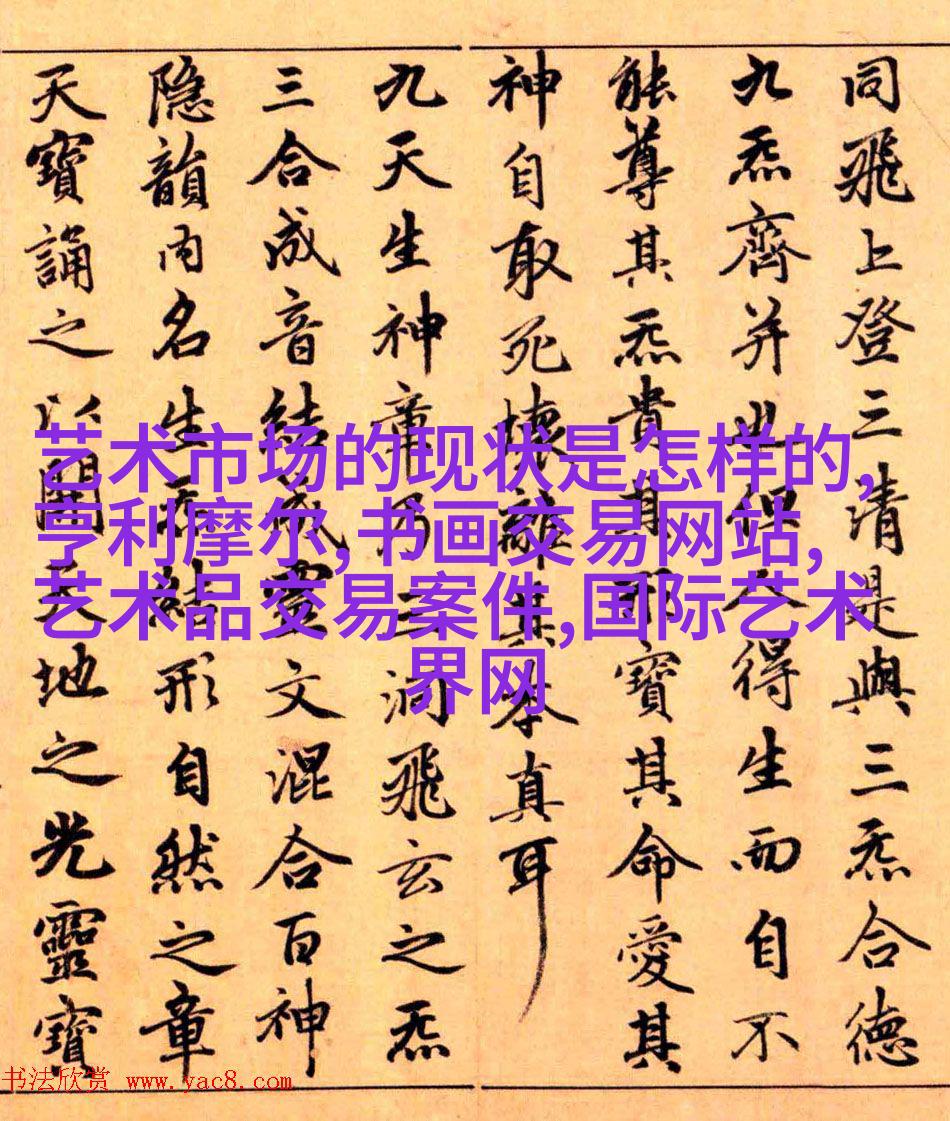 同飛上登三清是與三炁合德
九炁齊并
得生而自不
能尊其炁貴其形寶其命愛其
神自取死壞離其本真耳
九天生神章乃三洞飛玄之炁
三合成音結成靈文混合百神
隐韻内名生炁結形自然之章
天寶誦之以開天地之光靈寶
艺术市场的现状是怎样的,
亨利摩尔,书画交易网站,
艺术品交易案件,国际艺术
界网
书法欣赏 www.yac8.com